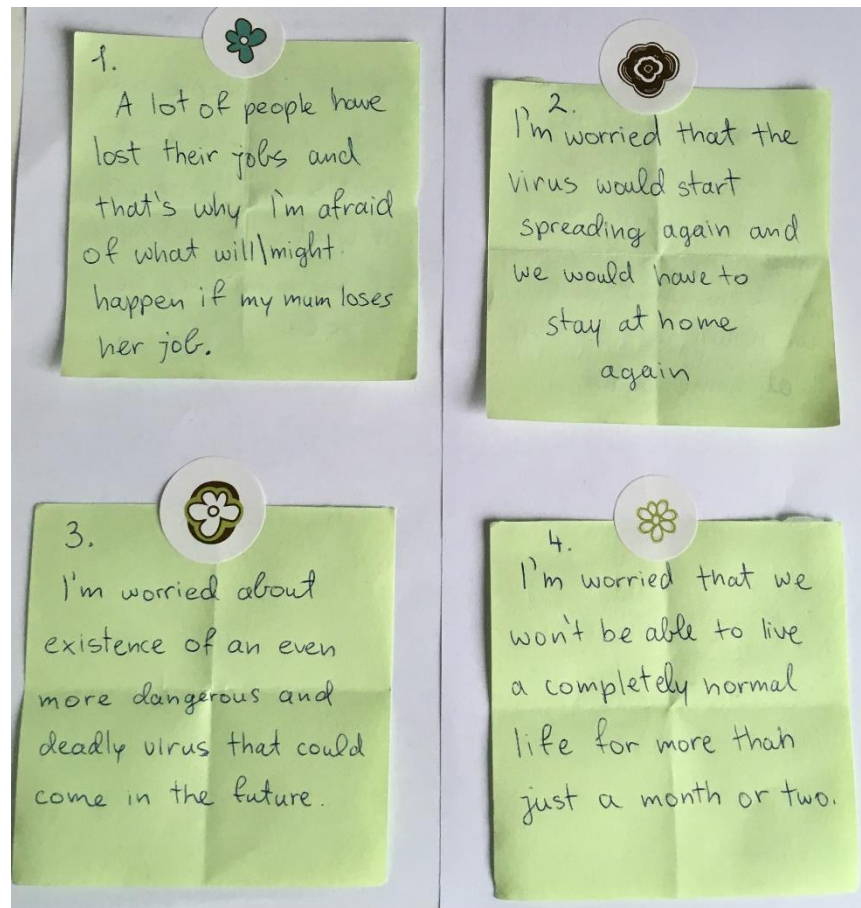 1.
A lot of people have
lost their jobs and
that's why I'm afraid
of what will\might
happen if my mum loses
her job.
2.
I'm worried that the
virus would start
spreading again and
we would have to
stay at home
again
3.
I'm worried about
existence of an even
more dangerous and
deadly virus that could
come in the future.
4.
I'm worried that we
won't be able to live
a completely normal
life for more than
just a month or two.